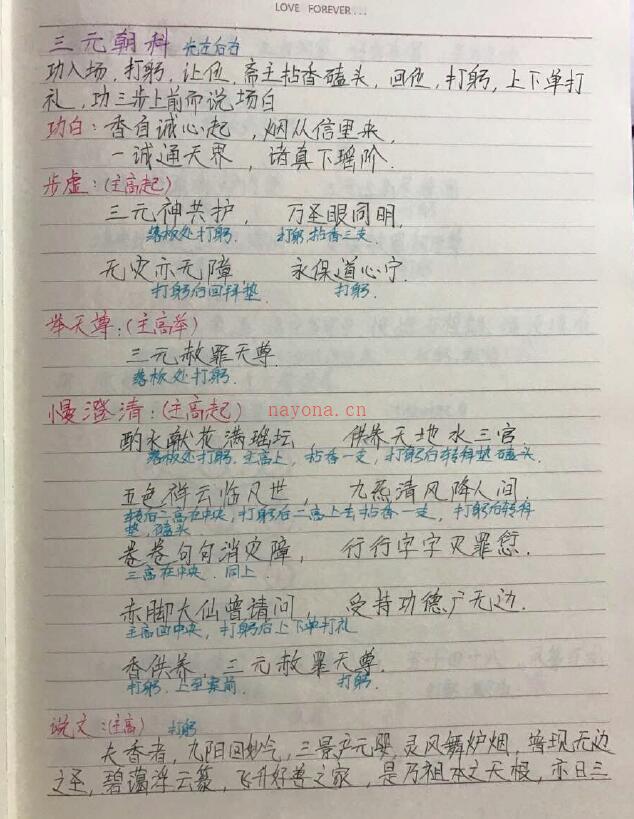 LOVE FOREVER...
三元朝科 先左后右
功入场,打躬,让位,斋主拈香磕头,回位,打躬,上下单打
礼,功三步上前而说场白
功白:香自诚心起,烟从信里来,
一诚通天界,诸真下瑶阶.
步虚:(主高起)
三元神共护, 万圣眼同明,
落板处打躬. 打躬,拈香三支.
无灾亦无障 永保道心宁
打躬后回拜垫. 打躬.
举天尊:(主高举)
三元赦罪天尊
落板处打躬.
慢澄清:(主高起)
酌水献花满瑶坛, 供养天地水三官
落板处打躬.主高上,拈香一支,打躬后转拜垫磕头.
五色祥云临凡世, 九炁清风降人间
转后二高在中央,打躬后二高上去拈香一支,打躬后转拜
垫,磕头
卷卷句句消灾障, 行行字字灭罪愆
三高在中央.同上.
赤脚大仙曾请问, 受持功德广无边
主高回中央,打躬后上下单打礼
香供养,三元赦罪天尊
打躬.上至案前. 打躬.
说文:(主高) 打躬
夫香者,九阳回妙气,三景产元婴,灵风舞炉烟,普现无边
之圣,碧蔼浮云篆,飞升好善之家,是乃祖本之天极,亦曰三
nayona.cn